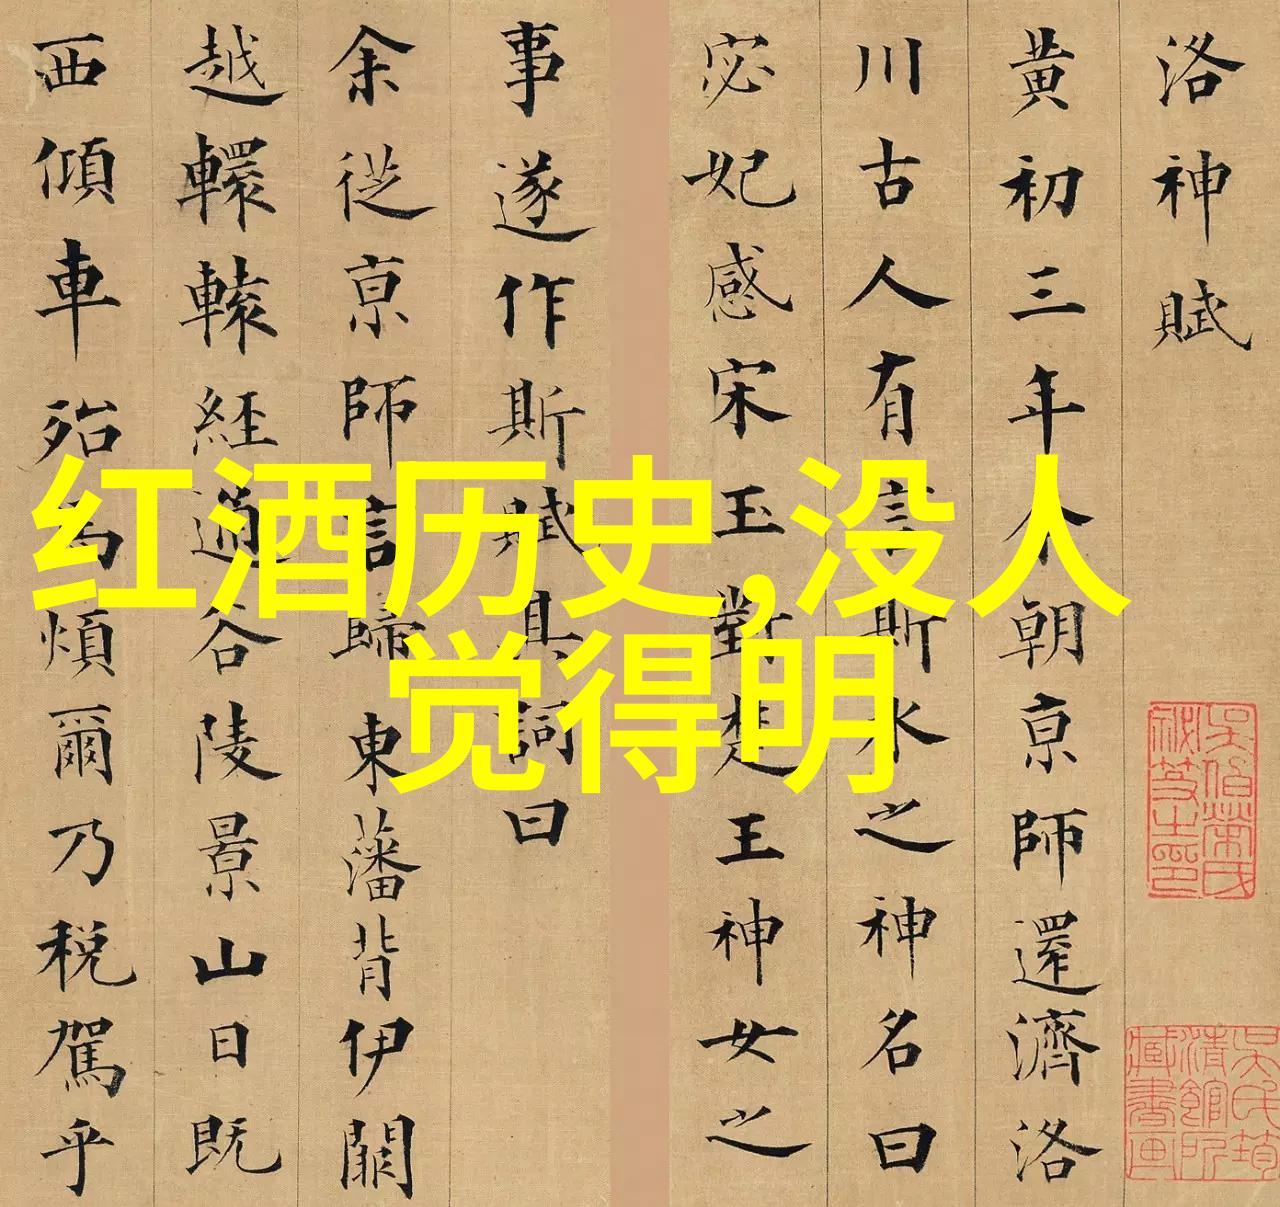 洛神賦
黄初三年余朝京師還濟洛
川古人有言斯水之神名曰
宓妃感宋玉對楚王神女之
事遂作斯賦其詞曰
余従京師言歸東藩背伊闕
越轘轅経通谷陵景山日既
西傾車殆馬煩爾乃税駕乎
红酒历史,没人
觉得明